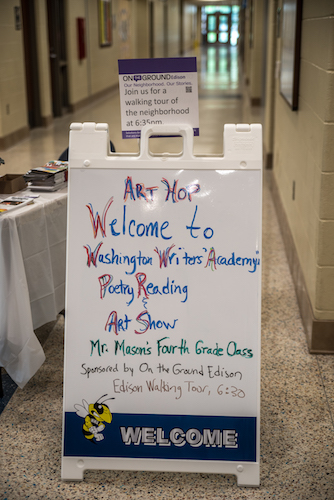 ON THE GROUND Edison
Our Neighborhood. Our Stories.
Join us for a
walking tour of
the neighborhood
at 6:35pm
ART HOP
Welcome to
Washington Writers' Academy's
Poetry Reading
&
Art Show
Mr. Mason's Fourth Grade Class
Sponsored by On the Ground Edison
Edison Walking Tour, 6:30
WELCOME